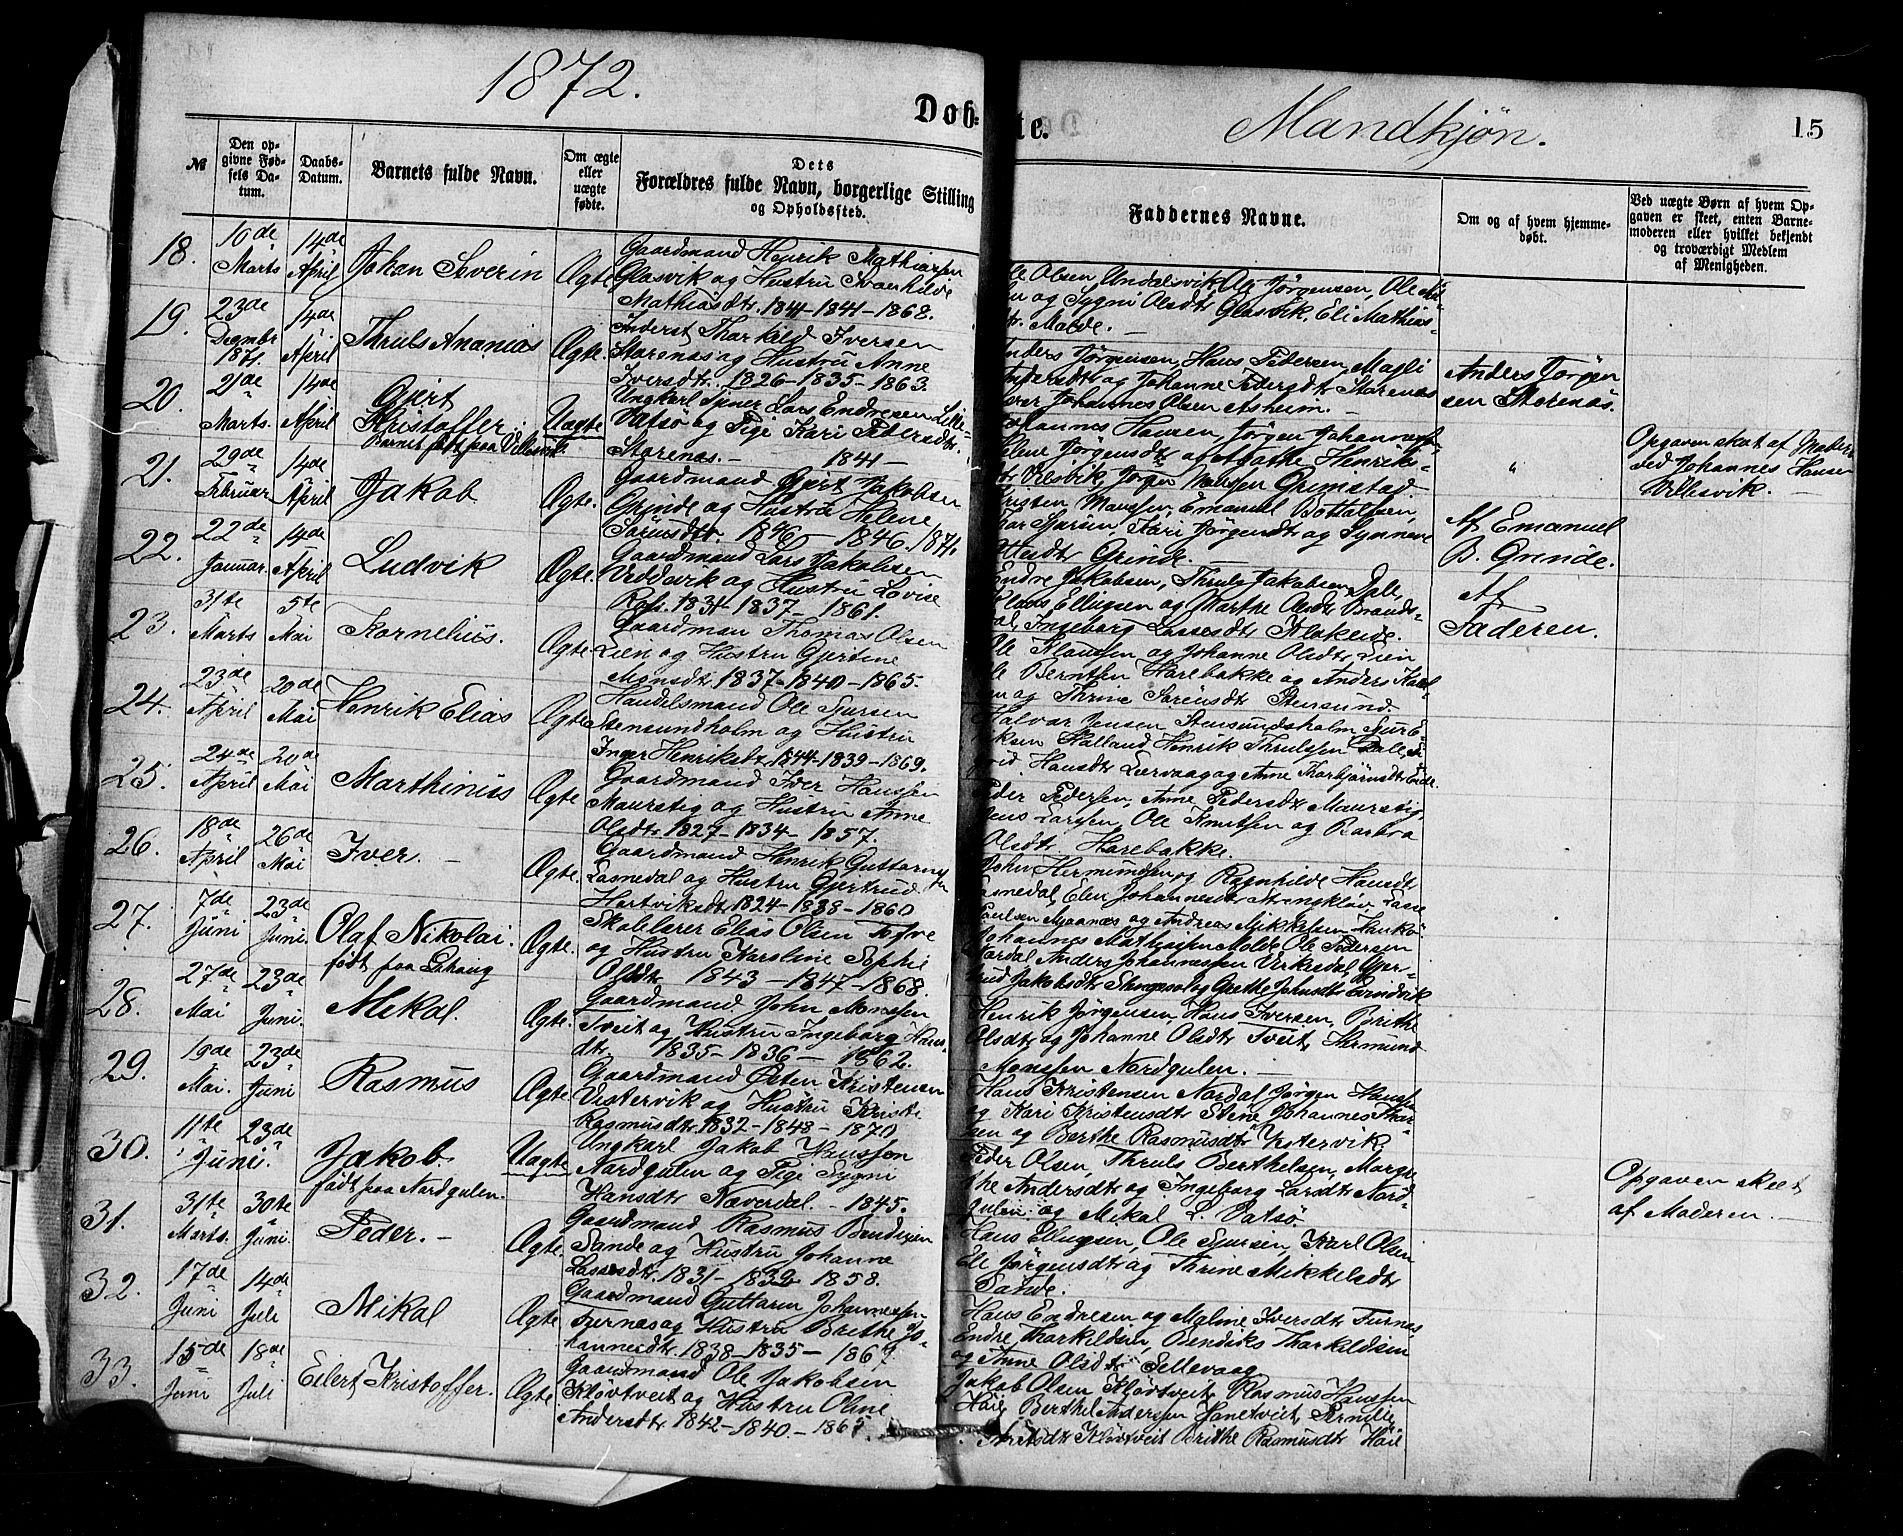 1872.
Døb-
te.
Mandkjøn.
15
№
Den opgivne Fødsels Datum.
Daabs-Datum.
Barnets fulde Navn.
Om ægte eller uægte fødte.
Dets Forældres fulde Navn, borgerlige Stilling og Opholdssted.
Faddernes Navne.
Om og af hvem hjemmedøbt.
Ved uægte Børn af hvem Opgaven er skeet, enten Barnemoderen eller hvilket bekjendt og troværdigt Medlem af Menigheden.
18. 16de Marts 14de April Johan Severin Ægte
Gaardmand Henrik Mathiassen
Glasvik og Hustru Svanhilde
Mathiasdtr. 1841-1841-1868.
Olsen Undalsvik, Ole Jørgensen, Ole
og Sygni Olsdtr Glasvik, Eli Mathias-
dtr. Molde. -
19. 23de Decmbr 1871. 14de April Thruls Ananias Ægte.
Inderst Tharkild Iversen
Storenæs og Hustru Anne
Iversdtr. 1826-1835-1863
Anders Jørgensen, Hans Pedersen, Magli
Andersdtr og Johanne Pedersdtr Storenæs
Johannes Olsen Asheim. -
Anders Jørgen
sen Storenæs.
20. 21de Marts. 14de April Gjert
Kristoffer. Uægte
Barnet født paa Villesvik.
Ungkarl Lars Endresen Lille-
Vatsø og Pige Kari Pedersdtr.
Storenæs. - 1841 -
Johannes Hansen, Jørgen Johannessen
Helene Jørgensdtr og Agathe Henriks-
dtr Vilesvik, Jørgen Monssen Grimstad.
"
Opgaven skeet af Moderen
ved Johannes Hansen
Villesvik. -
21. 29de Februar 14de April Jakob Ægte.
Gaardmand Gjert Jakobsen
Grinde og Hustru Helene
Sørensdtr. 1846 - 1846. 1871.
Kristen Monssen, Emanuel Bottolfsen,
Sjursen, Kari Jørgensdtr og Synneve
Grinde.
Af Emanuel
B. Grinde.
22. 22de Januar. 14de April Ludvik Ægte.
Gaardmand Lars Jakobsen
Veddevik og Hustru Lovise
1834-1837-1861.
Endre Jakobsen, Thruls Jakobsen Dale,
Klaus Ellingsen og Marthe Olsdtr Brands-
dal, Ingeborg Lassesdtr Klakeide.
Af
Faderen.
23. 31te Marts 5te Mai Kornelius. Ægte.
Gaardman Thomas Olsen
Lien og Hustru Gjertine
Monsdtr 1837-1840-1865.
Ole Klaussen og Johanne Olsdtr Lien
Ole Berntsen Harebakke og Anders Karl-
sen og Thrine Sørensdtr Stensund.
24. 23de April 20de Mai Henrik Elias Ægte
Handelsmand Ole Sjursen
Stensundholm og Hustru
Inger Henriksdtr. 1844-1839-1869.
Halvar Jensen Stensundsholm, Sjur E-
riksen Halland, Henrik Thrulssen Dale,
Hansdtr Leervaag og Anne Tharbjørnsdtr Eide.
25. 24de April 20de Mai Marthinius Ægte
Gaardmand Iver Hanssen
Maursteg og Hustru Anne
Olsdtr 1827-1834-1857.
Peder Pedersen, Anne Pedersdtr Maursteg
Larssen, Ole Knutsen og Barbra
Olsdtr. Harebakke.
26. 18de April 26de Mai Iver. - Ægte.
Gaardmand Henrik Guttormsen
Lassedal og Hustru Gjertrud
Hartviksdtr 1824-1838-1860
John Hermundsen og Ragnhilde Hansdtr
Lassedal, Elen Johannesdtr
Mjaanæs og Andreas Mikkelsen Hankø.
27. 7de Juni 23de Juni. Olaf Nikolai. Ægte.
født paa
Skolelærer Elias Olsen Tofne
og Hustru Karoline Sophie
Olsdtr 1843 - 1847-1868.
Johannes Mathiassen Molde, Ole Pedersen
Nordal, Anders Johannessen Virkesdal, Gjer-
trud Jakobsdtr og Grethe Johnsdtr Evindvik
28. 27de Mai 23de Juni. Mikal. Ægte.
Gaardmand John Monssen
Tveit og Hustru Ingeborg Hans-
dtr 1835-1836-1862.
Henrik Jørgensen, Hans Iversen, Brithe
Olsdtr og Johanne Olsdtr Tveit, Hermund
Monssen Nordgulen. -
29. 19de Mai. 23de Juni Rasmus Ægte.
Gaardmand Østen Kristensen
Vestervik og Hustru Kristi
Rasmusdtr. 1832-1848-1870
Hans Kristensen Nordal, Jørgen Hanss.
og Kari Kristensdtr Steine, Johannes Thar-
sen og Berthe Rasmusdtr Ystervik.
30. 11te Juni. 23de Juni. Jakob. Uægte
født paa Nordgulen.
Ungkarl Jakob Hanssøn
Nordgulen og Pige Sygni
Hansdtr Næverdal. - 1845.
Peder Olsen, Thruls Berthelsen, Margre-
the Andersdtr og Ingeborg Larsdtr Nord-
gulen og Mikal L. Vatsø
Opgaven skeet
af Moderen. -
31. 31te Marts. 30te Juni. Peder. - Ægte.
Gaardmand Rasmus Bendixen
Sande og Hustru Johanne
Lassesdtr. 1831-1832 1858.
Hans Ellingsen, Ole Sjursen, Karl Olsen
Eli Jørgensdtr og Thrine Mikkelsdtr
Sande.
32. 17de Juni 14de Juli Mikal Ægte
Gaardmand Guttorm Johannessen
Furnæs og Hustru Brithe Jo-
hannesdtr. 1838-1835-1867
Hans Endresen og Maline Iversdtr Furnæs
Endre Tharkildsen, Bendiks Tharkildsen
og Anne Olsdtr Sellevaag
33. 15de Juni 18de Juli Eilert Kristoffer. Ægte.
Gaardmand Ole Jakobsen
Kløvtveit og Hustru Oline
Andersdtr 1842-1840.-1865.
Jakob Olsen Kløvtveit, Rasmus Hanssen
Høie, Berthel Andersen Hanetveit, Pernille
Kløvtveit Brithe Rasmusdtr Høie